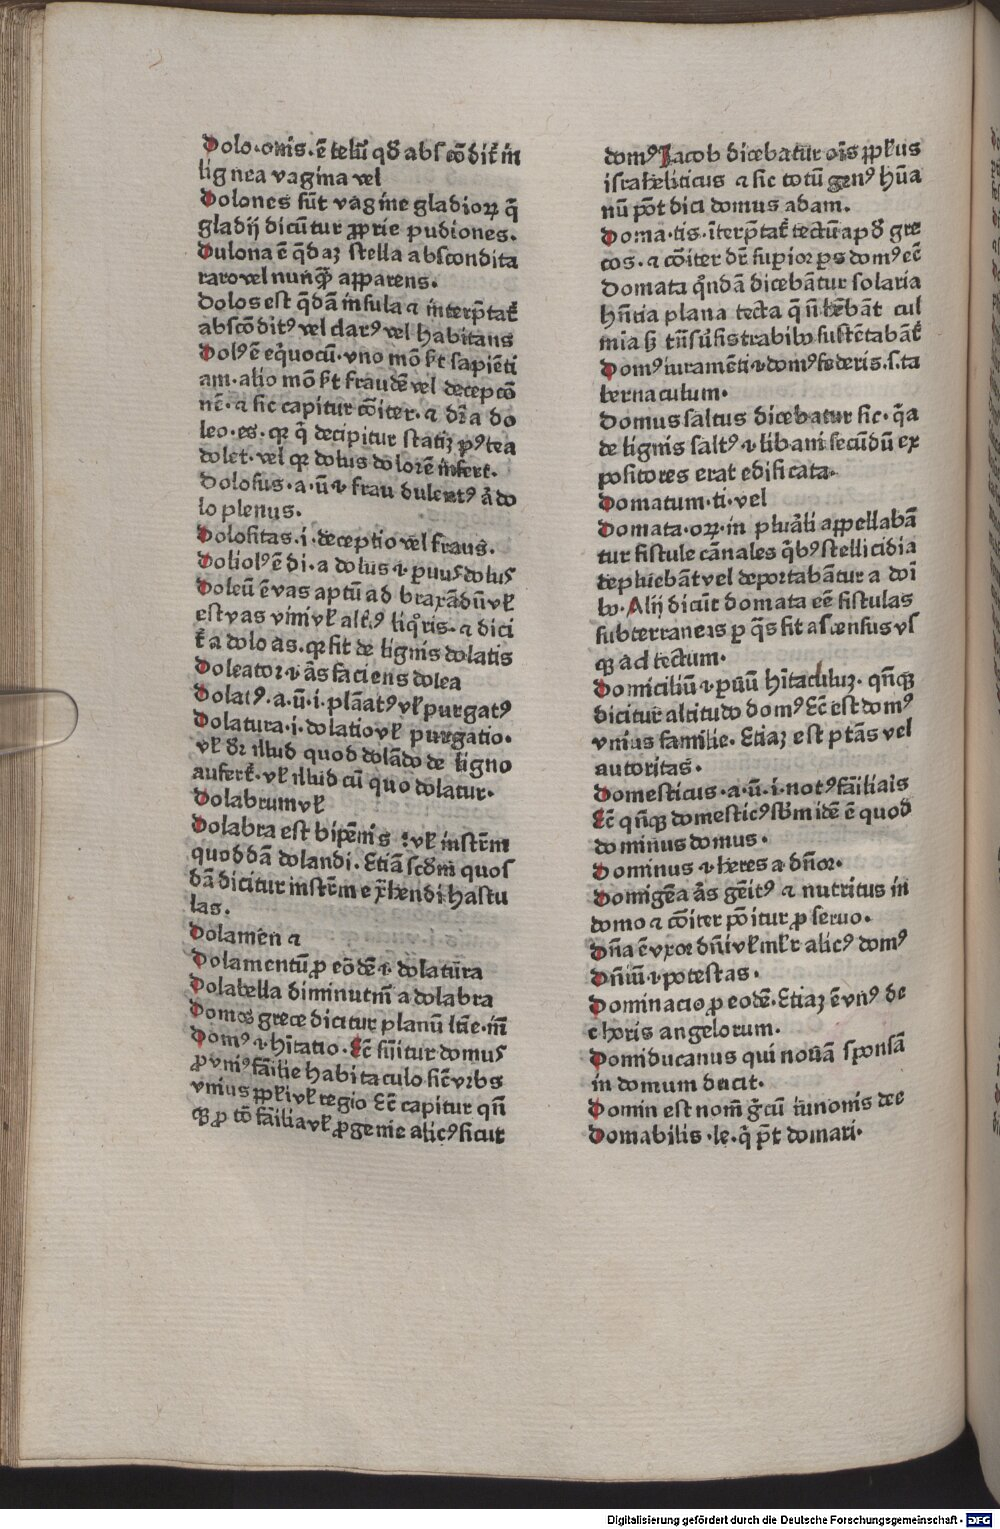 Dolo·onis·ē telū qđ absꝯdit̄ in
lignea vagina vel
Dolones sūt vagine gladioꝝ q̄
gladij dicūtur ꝓprie pudiones.
Dulona ē q̄daꝫ stella abscondita
raro vel nunꝙ̄ apparens.
Dolos est q̄dā insula ⁊ interp̄tat̄
absꝯditꝰ vel darꝰ vel habitans
Dolꝰ ē eq̇uocū·vno mō ẜt sapiēti
am·alio mō ẜt fraudē vel decepcō
nē·⁊ sic capitur cōiter·⁊ dr̄ a do
leo·es·qꝛ q̄ decipitur statiꝫ pꝰtea
dolet·vel qꝛ dolus dolorē infert.
Dolosus·a·ū·⁊ fraudulentꝰ a do
lo plenus.
Dolositas·i·deceptio vel fraus.
Doliolꝰ ē di·a dolus ⁊ ꝑuus dolus
Doleū ē vas aptū ad braxādū vł
est vas vini vł altꝰ liq̊ris·⁊ dici
t̄ a dolo as·qꝛ fit de lignis dolatis
Doleator ⁊ ās faciens dolea
Dolatꝰ·a·ū·i·planatꝰ vł purgatꝰ
Dolatura·i·dolatio vł purgatio·
vł dr̄ illud quod dolādo de ligno
aufert̄·vł illud cū quo dolatur·
Dolabrum vł
Dolabra est bipēnis·vł instr̄m
quoddā dolandi·Etiā scd̄m quos
dā dicitur instr̄m exhendi hastu
las.
Dolamen ⁊
Dolamentū ꝓ eodē ⁊ dolatura
Dolabella diminutm̄ a dolabra
Domos grece dicitur planū lat̄ie·in̄
Domꝰ ⁊ hītatio·Ec̄ sūitur domus
ꝓ vniꝰ fāilie habitaculo sic̄ vrbs
vnius ppl̄i vł regio Ec̄ capitur qn̄
qꝫ ꝓ tō fāilia vł ꝓgenie alicꝰ sicut
domꝰ Jacob dicebatur oīs ppl̄us
israheliticus ⁊ sic totū genꝰ hūa
nū pōt dici domus adam.
Doma·tis·īterp̄tat̄ tectū apđ gre
cos·⁊ cōiter dr̄ superior ꝑs domꝰ ec̄
Domata qn̄dā dicebātur solaria
hn̄tia plana tecta q̄ n̄ hēbāt cul
mia sꝫ tn̄ sūis trabibꝰ sustētabāt̄
Domꝰ iuramēti ⁊ domꝰ federis·s·ta
bernaculum·
Domus saltus dicebatur sic·q̄a
de lignis saltꝰ ⁊ libani secūdū ex
positores erat edificata·
Domatum·ti·vel
Domata·oꝝ·in plurali appellabā
tur fistule cānales q̄bꝰ stellicidia
dephiebāt vel deportabātur a doī
bꝰ·Alij dicūt domata eē fistulas
subterraneas ꝑ q̄s fit ascensus vs
qꝫ ad tectum·
Domiciliū ⁊ ꝑuū hītaculuꝫ·qn̄qꝫ
dicitur altitudo domꝰ Ec̄ est domꝰ
vnius familie·Etiaꝫ est ptās vel
autoritas.
Domesticus·a·ū·i·notꝰ fāiliaris
Ec̄ qn̄qꝫ domesticꝰ sb̄m idē ē quod
dominus domus·
Dominus ⁊ heres a dn̄or·
Domigēa ās gēitꝰ ⁊ nutritus in
domo ⁊ cōiter pōitur ꝓ seruo·
Dn̄a ē vxor dn̄i vł ml̄r alicꝰ domꝰ
Dn̄iū ⁊ potestas·
Dominacio ꝓ eodē·Etiaꝫ ē vnꝰ de
choris angelorum·
Domiducanus qui nouā sponsā
in domum ducit·
Domin est nom̄ gr̄cū iunonis dee
Domabilis·le·q̇ pt̄ domari·
Digitalisierung gefördert durch die Deutsche Forschungsgemeinschaft - DFG